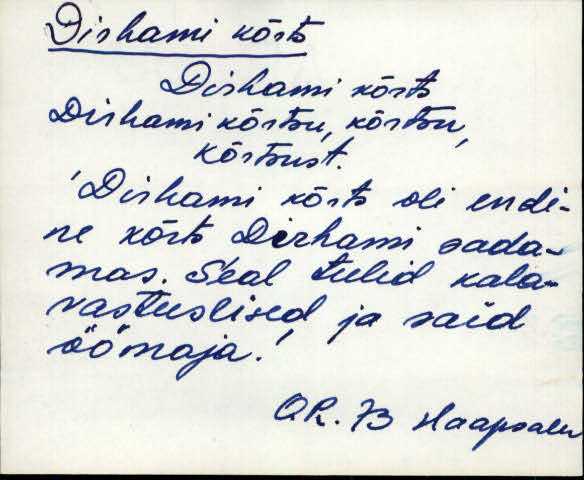 Dirhami kõrts
Dirhami kõrts
Dirhami kõrtsu, kõrtsu,
kõrtsust.
'Dirhami kõrts oli endi-
ne kõrts Dirhami sada-
mas. Seal tulid kala-
vastuslised ja said
öömaja.'
73 Haapsalu